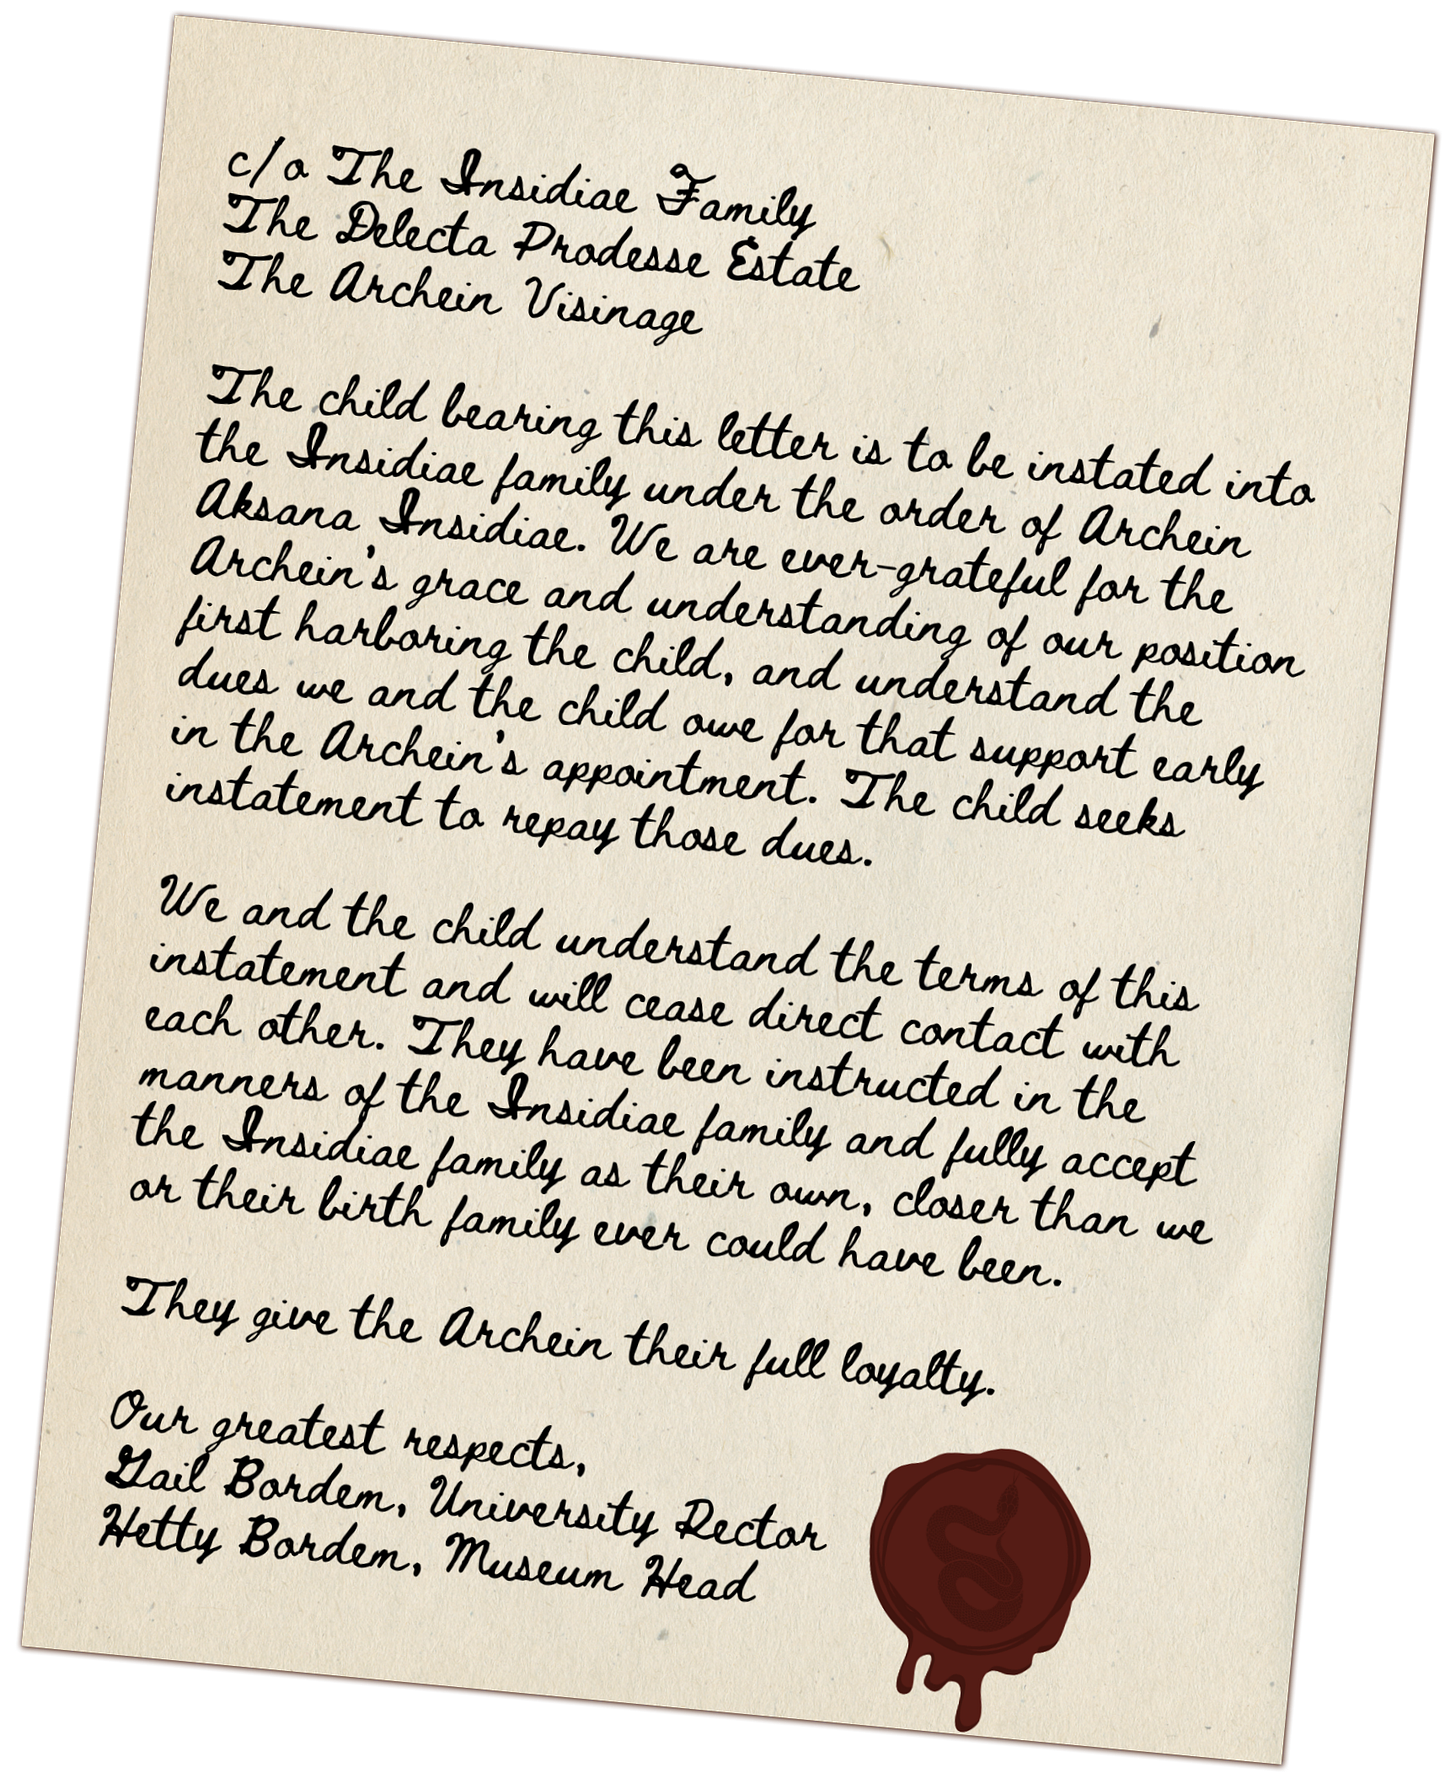 c/o The Insidiae Family
The Delecta Prodesse Estate
The Archein Visinage
The child bearing this letter is to be instated into
the Insidiae family under the order of Archein
Aksana Insidiae. We are ever-grateful for the
Archein's grace and understanding of our position
first harboring the child, and understand the
dues we and the child owe for that support early
in the Archein's appointment. The child seeks
instatement to repay those dues.
We and the child understand the terms of this
instatement and will cease direct contact with
each other. They have been instructed in the
manners of the Insidiae family and fully accept
the Insidiae family as their own, closer than we
or their birth family ever could have been.
They give the Archein their full loyalty.
Our greatest respects,
Gail Bordem, University Rector
Hetty Bordem, Museum Head